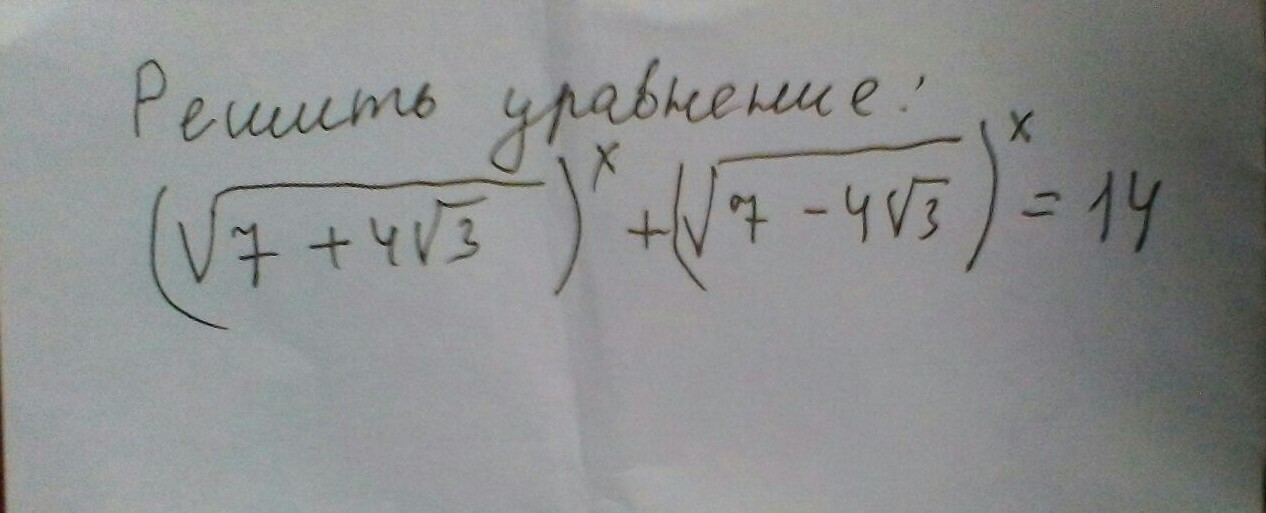 Решить уравнение:
(√(7 + 4√3))^x + (√(7 - 4√3))^x = 14